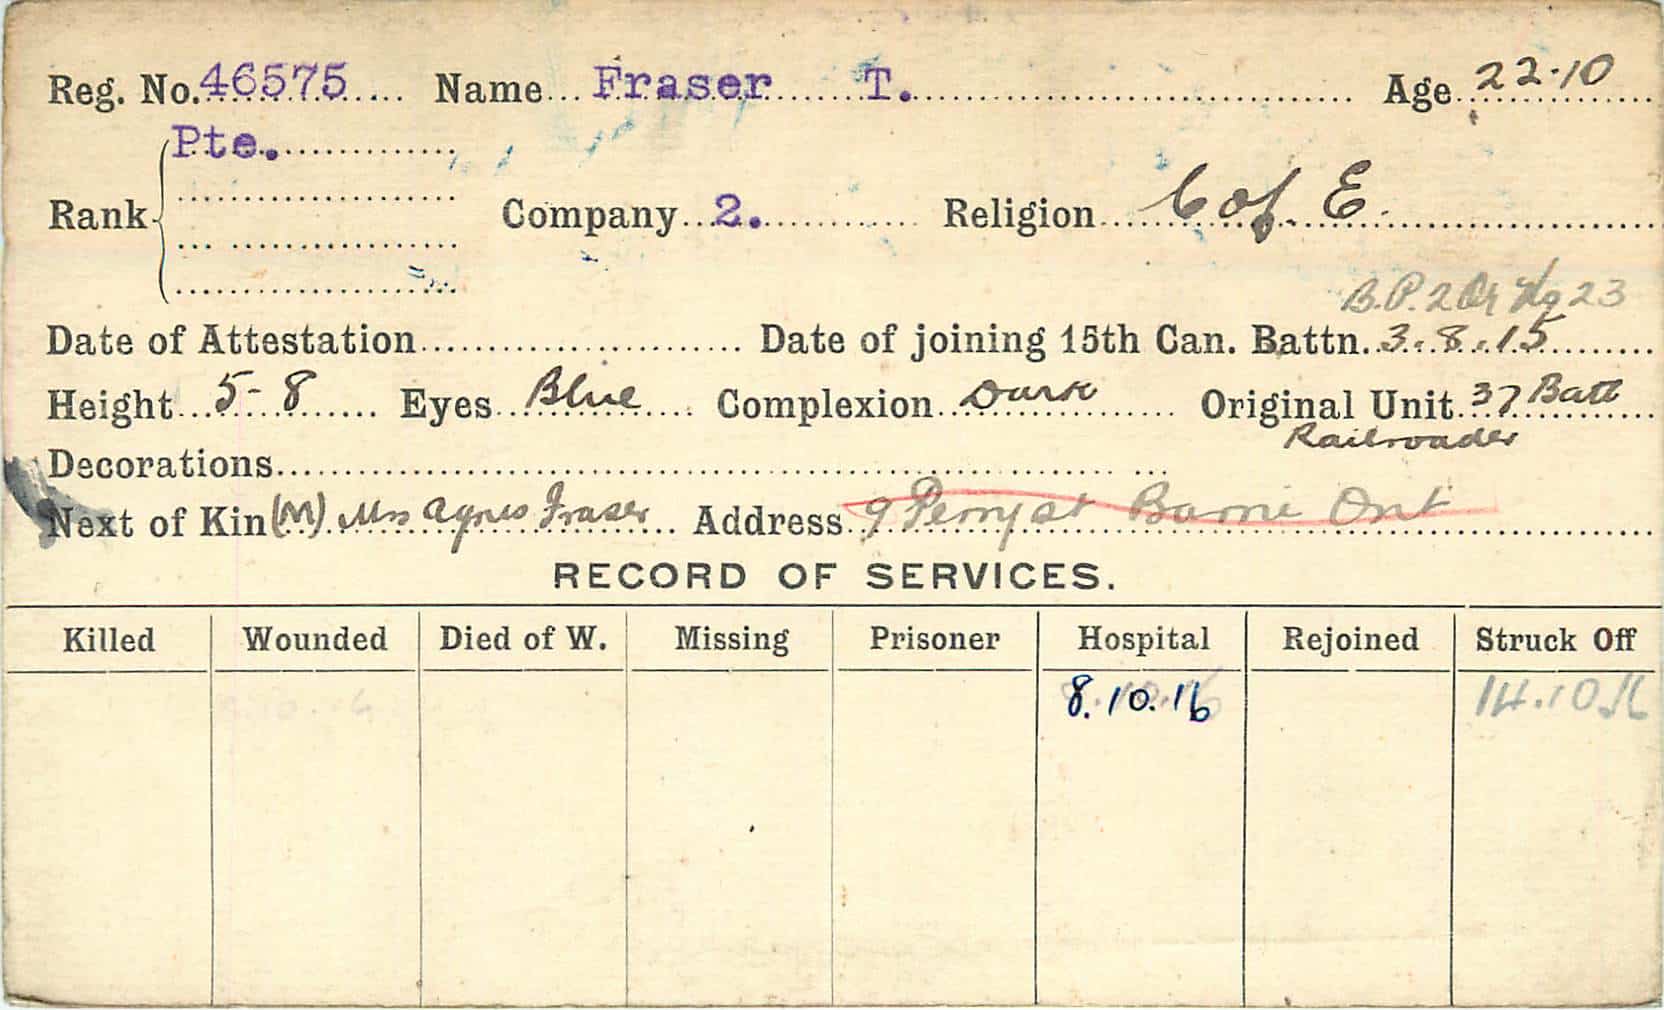 Reg. No. 46575 Name Fraser T. Age 22-10
Pte.
Rank Company 2. Religion C of. E.
B.P. 2 23
Date of Attestation Date of joining 15th Can. Battn. 3.8.15
Height 5-8 Eyes Blue Complexion Dark Original Unit 37 Batt
Railroader
Decorations
Next of Kin (M) Mrs Agnes Fraser Address 9 Perry st Barrie Ont
RECORD OF SERVICES.
Killed Wounded Died of W. Missing Prisoner Hospital Rejoined Struck Off
8.10.16 14.10.16